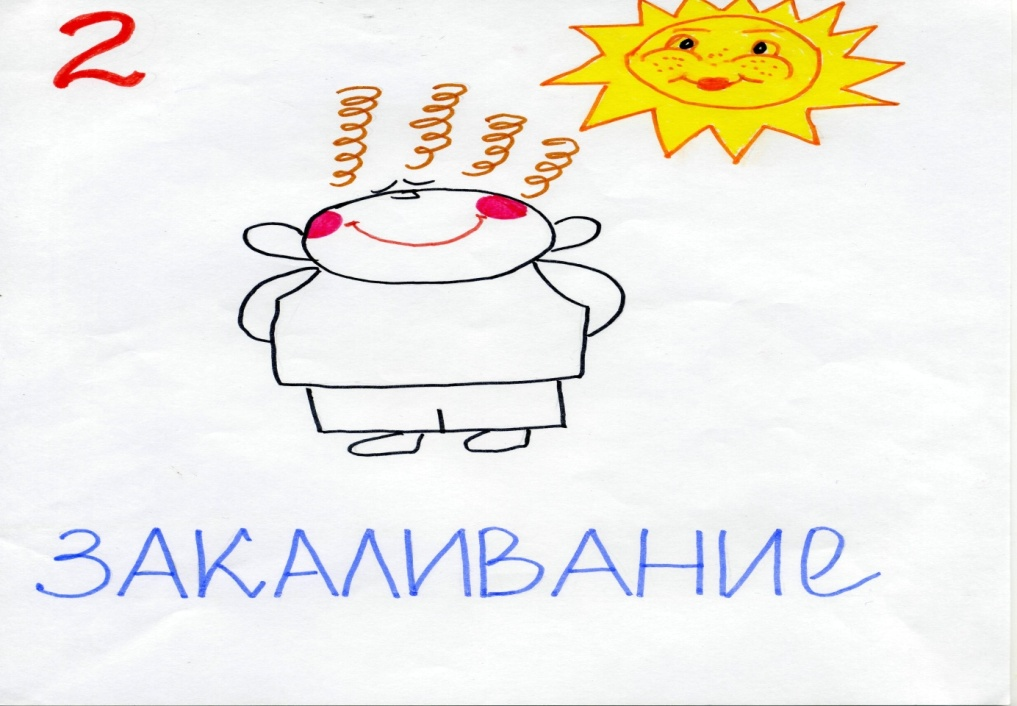 2
ЗАКАЛИВАНИЕ